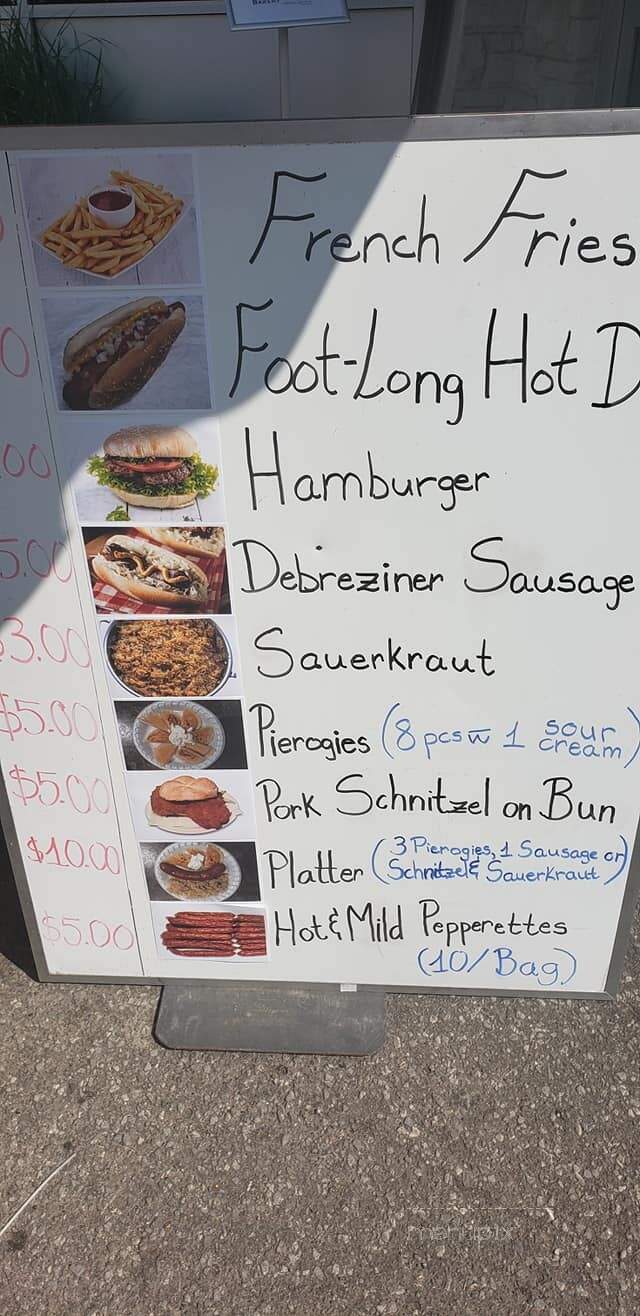 BAKERY
French Fries
0 Foot-Long Hot D
.00 Hamburger
5.00 Debreziner Sausage
3.00 Sauerkraut
$5.00 Pierogies (8 pcs w 1 sour cream)
$5.00 Pork Schnitzel on Bun
$10.00 Platter (3 Pierogies, 1 Sausage or Schnitzel & Sauerkraut)
$5.00 Hot & Mild Pepperettes
(10/Bag)
menupix